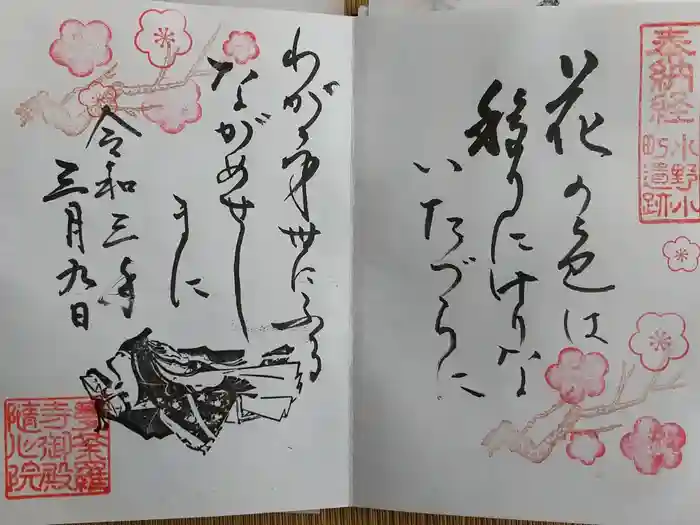 奉納経
小野小
町遺跡
花の色は
移りにけりな
いたづらに
わが身世にふる
ながめせし
まに
令和三年
三月九日
曼荼羅
寺御殿
隨心院